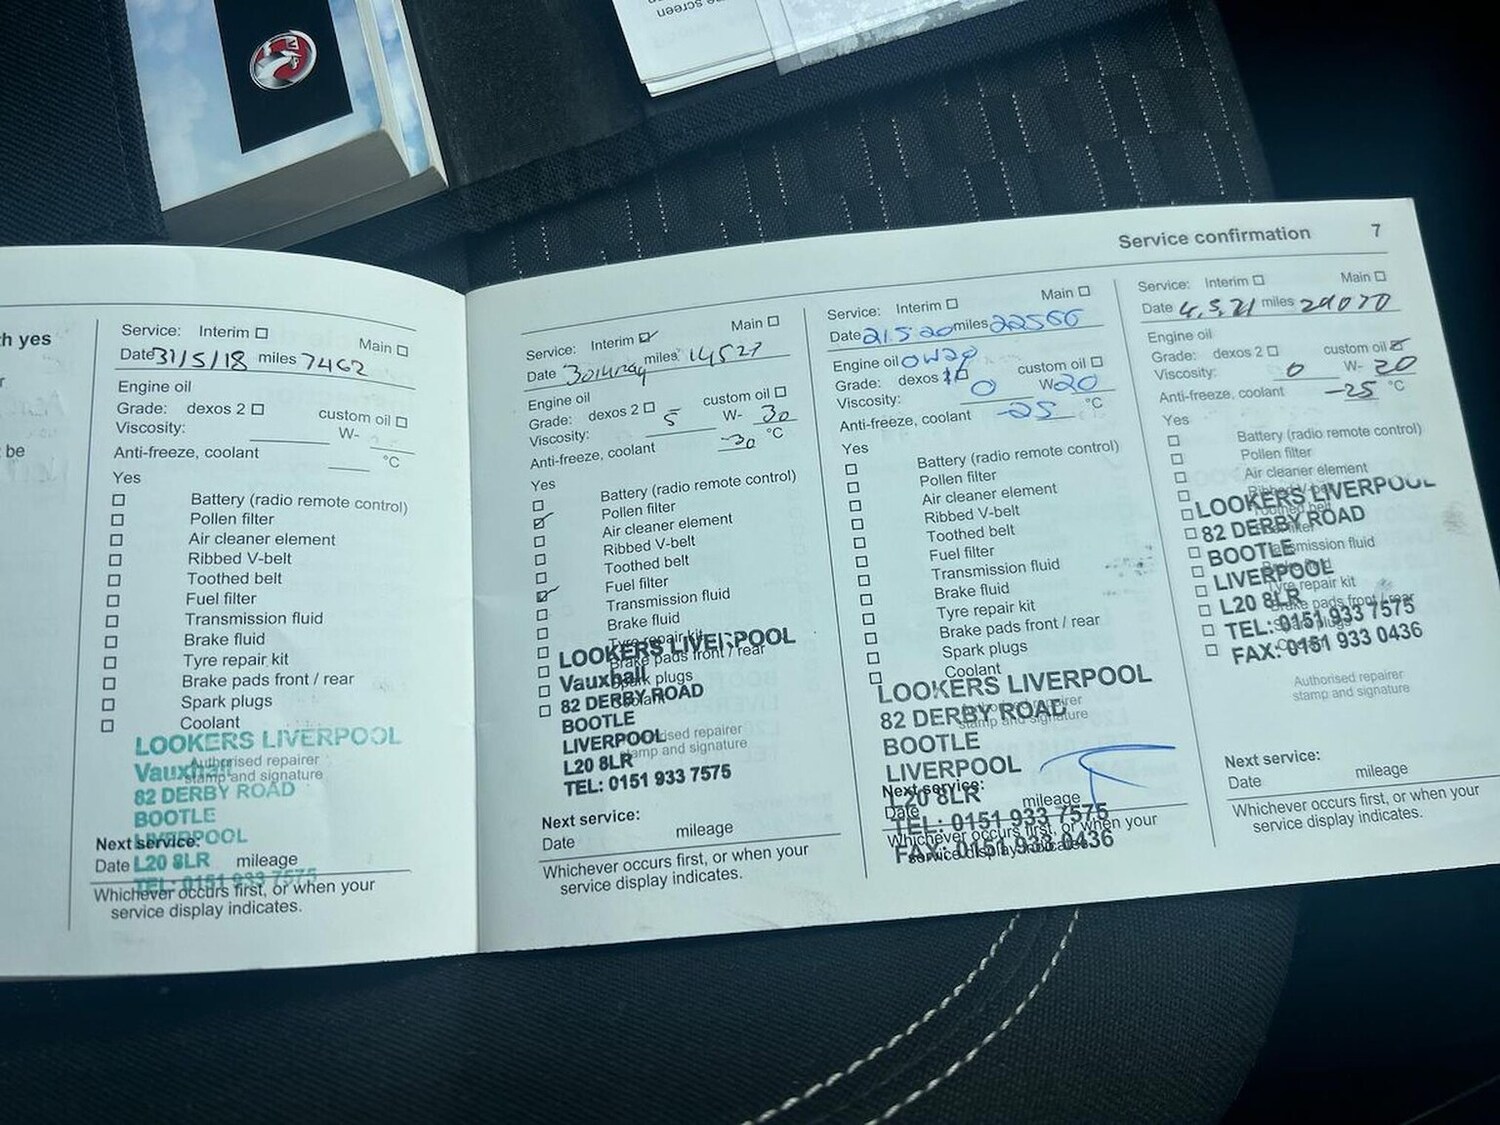 e screen
Service confirmation 7
h yes
be
Service: Interim ☐ Main ☐
Date 31/5/18 miles 7462
Engine oil
Grade: dexos 2 ☐ custom oil ☐
Viscosity: W-
Anti-freeze, coolant °C
Yes
☐ Battery (radio remote control)
☐ Pollen filter
☐ Air cleaner element
☐ Ribbed V-belt
☐ Toothed belt
☐ Fuel filter
☐ Transmission fluid
☐ Brake fluid
☐ Tyre repair kit
☐ Brake pads front / rear
☐ Spark plugs
☐ Coolant
LOOKERS LIVERPOOL
Authorised repairer
Vauxhall
stamp and signature
82 DERBY ROAD
BOOTLE
LIVERPOOL
Next service:
Date L20 8LR mileage
TEL: 0151 933 7575
Whichever occurs first, or when your
service display indicates.
Service: Interim ☑ Main ☐
Date miles 14527
Engine oil
Grade: dexos 2 ☐ custom oil ☐
Viscosity: 5 W- 30
Anti-freeze, coolant -30 °C
Yes
☐ Battery (radio remote control)
☑ Pollen filter
☐ Air cleaner element
☐ Ribbed V-belt
☐ Toothed belt
☑ Fuel filter
☐ Transmission fluid
☐ Brake fluid
☐ Tyre repair kit
LOOKERS LIVERPOOL
☐ Brake pads front / rear
Vauxhall
☐ Spark plugs
82 DERBY ROAD
☐ Coolant
BOOTLE
LIVERPOOL
Authorised repairer
stamp and signature
L20 8LR
TEL: 0151 933 7575
Next service:
Date mileage
Whichever occurs first, or when your
service display indicates.
Service: Interim ☐ Main ☐
Date 21 5 20 miles 22566
Engine oil 0W20
Grade: dexos custom oil ☐
Viscosity: 0 W- 20
Anti-freeze, coolant -25 °C
Yes
☐ Battery (radio remote control)
☐ Pollen filter
☐ Air cleaner element
☐ Ribbed V-belt
☐ Toothed belt
☐ Fuel filter
☐ Transmission fluid
☐ Brake fluid
☐ Tyre repair kit
☐ Brake pads front / rear
☐ Spark plugs
☐ Coolant
LOOKERS LIVERPOOL
Authorised repairer
82 DERBY ROAD
stamp and signature
BOOTLE
LIVERPOOL
Next service:
L20 8LR
Date mileage
TEL: 0151 933 7575
Whichever occurs first, or when your
FAX: 0151 933 0436
service display indicates.
Service: Interim ☐ Main ☐
Date 4.5.21 miles 29070
Engine oil
Grade: dexos 2 ☐ custom oil ☑
Viscosity: 0 W- 20
Anti-freeze, coolant -25 °C
Yes
☐ Battery (radio remote control)
☐ Pollen filter
☐ Air cleaner element
☐ Ribbed V-belt
LOOKERS LIVERPOOL
☐ Toothed belt
82 DERBY ROAD
BOOTLE
☐ Transmission fluid
LIVERPOOL
☐ Tyre repair kit
L20 8LR
☐ Brake pads front / rear
TEL: 0151 933 7575
FAX: 0151 933 0436
Authorised repairer
stamp and signature
Next service:
Date mileage
Whichever occurs first, or when your
service display indicates.